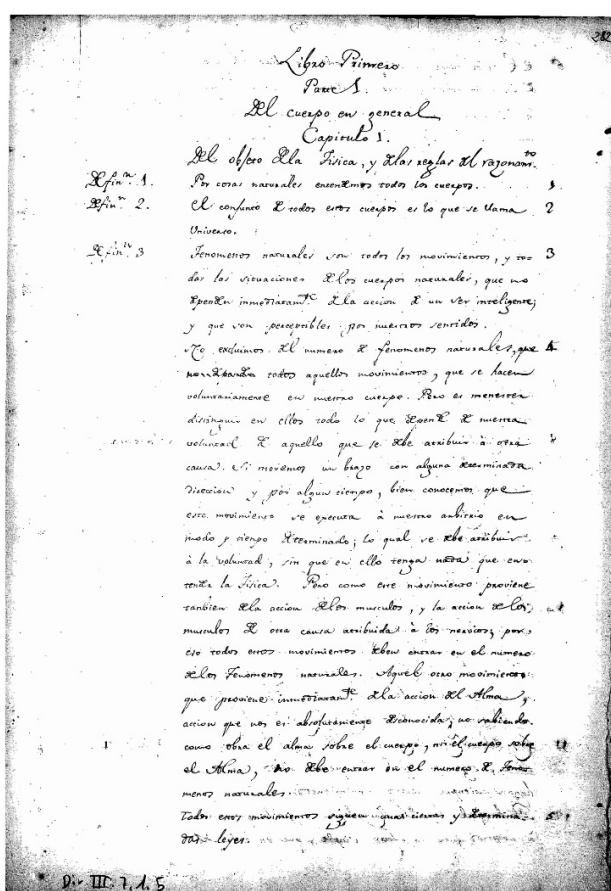 212
Libro Primero
Parte 1.
Del cuerpo en general
Capitulo 1.
Del objeto dela Fisica, y delas reglas del razonam.to
Defin.n 1. Por cosas naturales entendemos todos los cuerpos. 1
Defin.n 2. El conjunto de todos estos cuerpos es lo que se llama 2
Universo.
Defin.n 3 Fenomenos naturales son todos los movimientos, y to- 3
das las situaciones delos cuerpos naturales, que no
dependen inmediatam.te dela accion de un ser inteligente;
y que son perceptibles por nuestros sentidos.
No excluimos del numero de fenomenos naturales, que 4
todos aquellos movimientos, que se hacen
voluntariamente en nuestro cuerpo. Pero es menester
distinguir en ellos todo lo que depende de nuestra
voluntad de aquello que se debe atribuir à otra
causa. Si movemos un brazo con alguna determinada
direccion y por algun tiempo, bien conocemos que
este movimiento se executa à nuestro arbitrio en
modo y tiempo determinado; lo qual se debe atribuir
à la voluntad, sin que en ello tenga nada que en-
tender la Fisica. Pero como este movimiento proviene
tanbien dela accion delos musculos, y la accion delos
musculos de otra causa atribuida à los nervios; por
eso todos estos movimientos deben entrar en el numero
delos Fenomenos naturales. Aquel otro movimiento
que proviene inmediatam.te dela accion del Alma,
accion que nos es absolutamente desconocida, no sabiendo
como obra el alma sobre el cuerpo, ni el cuerpo sobre
el Alma, no debe entrar en el numero de Feno-
menos naturales.
Todos estos movimientos siguen ciertas y determina- 5
das leyes.
Div III. 7. 1. 5